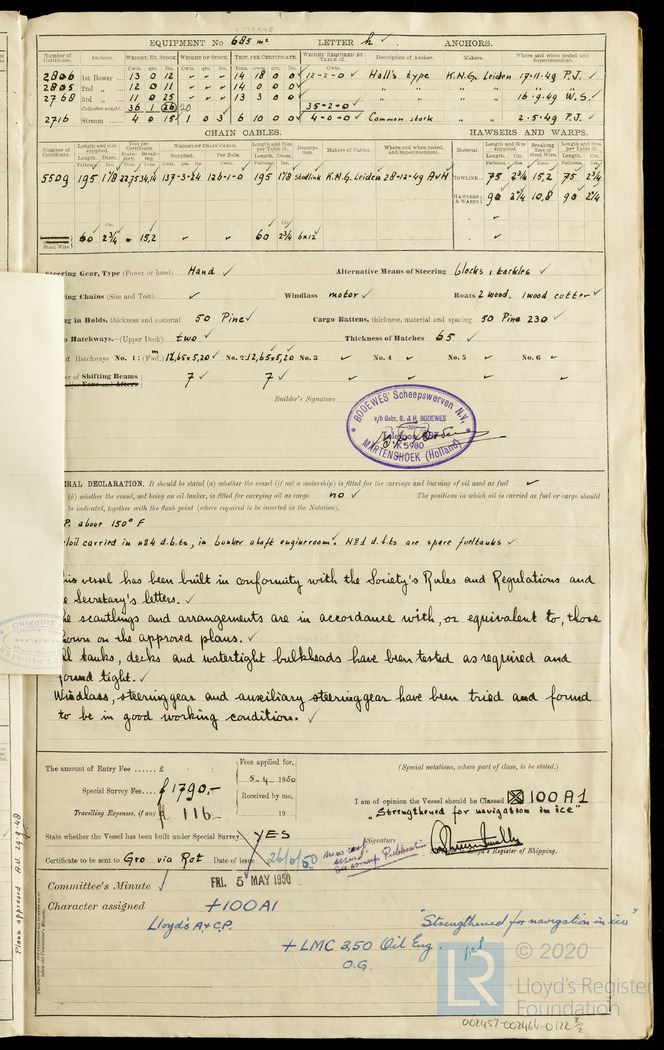 EQUIPMENT No 685 m² LETTER h. ANCHORS.
Number of Certificate. Anchors. WEIGHT, EX. STOCK WEIGHT OF STOCK. TEST, PER CERTIFICATE. WEIGHT REQUIRED BY TABLE 32. Description of Anchor. Makers. Where and when tested and Superintendent.
2806 1st Bower 13 0 12 14 18 0 0 12-2-0 ✓ Hall's type K.N.G. Leiden 17-11-49 P.J. ✓
2805 2nd " 12 0 11 14 0 0 0 " " " "
2768 3rd " 11 0 25 13 3 0 0 " " 16-9-49 W.S.
Collective weight. 36 1 20 35-2-0
2716 Stream 4 0 15 1 0 3 6 10 0 0 4-0-0 ✓ Common stock " " 2-5-49 P.J. ✓
CHAIN CABLES. HAWSERS AND WARPS.
5509 195 1 7/8 137-3-24 126-1-0 195 1 7/8 Studlink K.N.G. Leiden 28-12-49 AvH TOWLINE 75 2¾ 15,2 75 2¾
HAWSERS & WARPS 90 2¼ 10,8 90 2¼
Steel Wire 60 2¾ 15,2 ✓ ✓ 60 2¾ 6x12
Steering Gear, Type (Power or hand) Hand ✓ Alternative Means of Steering blocks & tackles ✓
ring Chains (Size and Test) ✓ Windlass motor ✓ Boats 2 wood. 1 wood cutter ✓
ng in Holds, thickness and material 50 Pine ✓ Cargo Battens, thickness, material and spacing 50 Pine 230 ✓
o Hatchways.—(Upper Deck) two ✓ Thickness of Hatches 65 ✓
Hatchways No. 1: (Fwd.) 12,65x5,20 ✓ No. 2: 12,65x5,20 No. 3 ✓ No. 4 ✓ No. 5 ✓ No. 6 ✓
er of Shifting Beams 7 ✓ 7 ✓ ✓ ✓ ✓ ✓
Builder's Signature
BODEWES' Scheepswerven N.V.
v/h Gebr. G. & H. BODEWES
MARTENSHOEK (Holland)
ERAL DECLARATION. It should be stated (a) whether the vessel (if not a motorship) is fitted for the carriage and burning of oil used as fuel ✓
(b) whether the vessel, not being an oil tanker, is fitted for carrying oil as cargo no ✓ The positions in which oil is carried as fuel or cargo should
be indicated, together with the flash point (where required to be inserted in the Notation).
P. above 150° F
oil carried in no 4 d.b.ts, in bunker abaft engineroom. No 1 d.b.ts are spare fueltanks ✓
his vessel has been built in conformity with the Society's Rules and Regulations and
e Secretary's letters. ✓
he scantlings and arrangements are in accordance with, or equivalent to, those
hown on the approved plans. ✓
ll tanks, decks and watertight bulkheads have been tested as required and
found tight. ✓
Windlass, steeringgear and auxiliary steeringgear have been tried and found
to be in good working condition. ✓
The amount of Entry Fee ...... £ : : Fees applied for, (Special notations, where part of class, to be stated.)
5-4-1950
Special Survey Fee.... ƒ 1790.- Received by me, I am of opinion the Vessel should be Classed ✠ 100 A1
Travelling Expenses, if any ƒ 116 19 "Strengthened for navigation in ice"
State whether the Vessel has been built under Special Survey YES Signature
Certificate to be sent to Gro via Rot Date of issue 26/6/50 Lloyd's Register of Shipping.
Committee's Minute FRI. 5 MAY 1950
Character assigned +100A1
Lloyd's A & C.P. "Strengthened for navigation in ice"
+ LMC 3,50 Oil Eng.
O.G.
Plans approved
LR © 2020
Lloyd's Register
Foundation
002457-002464-0122 2/2